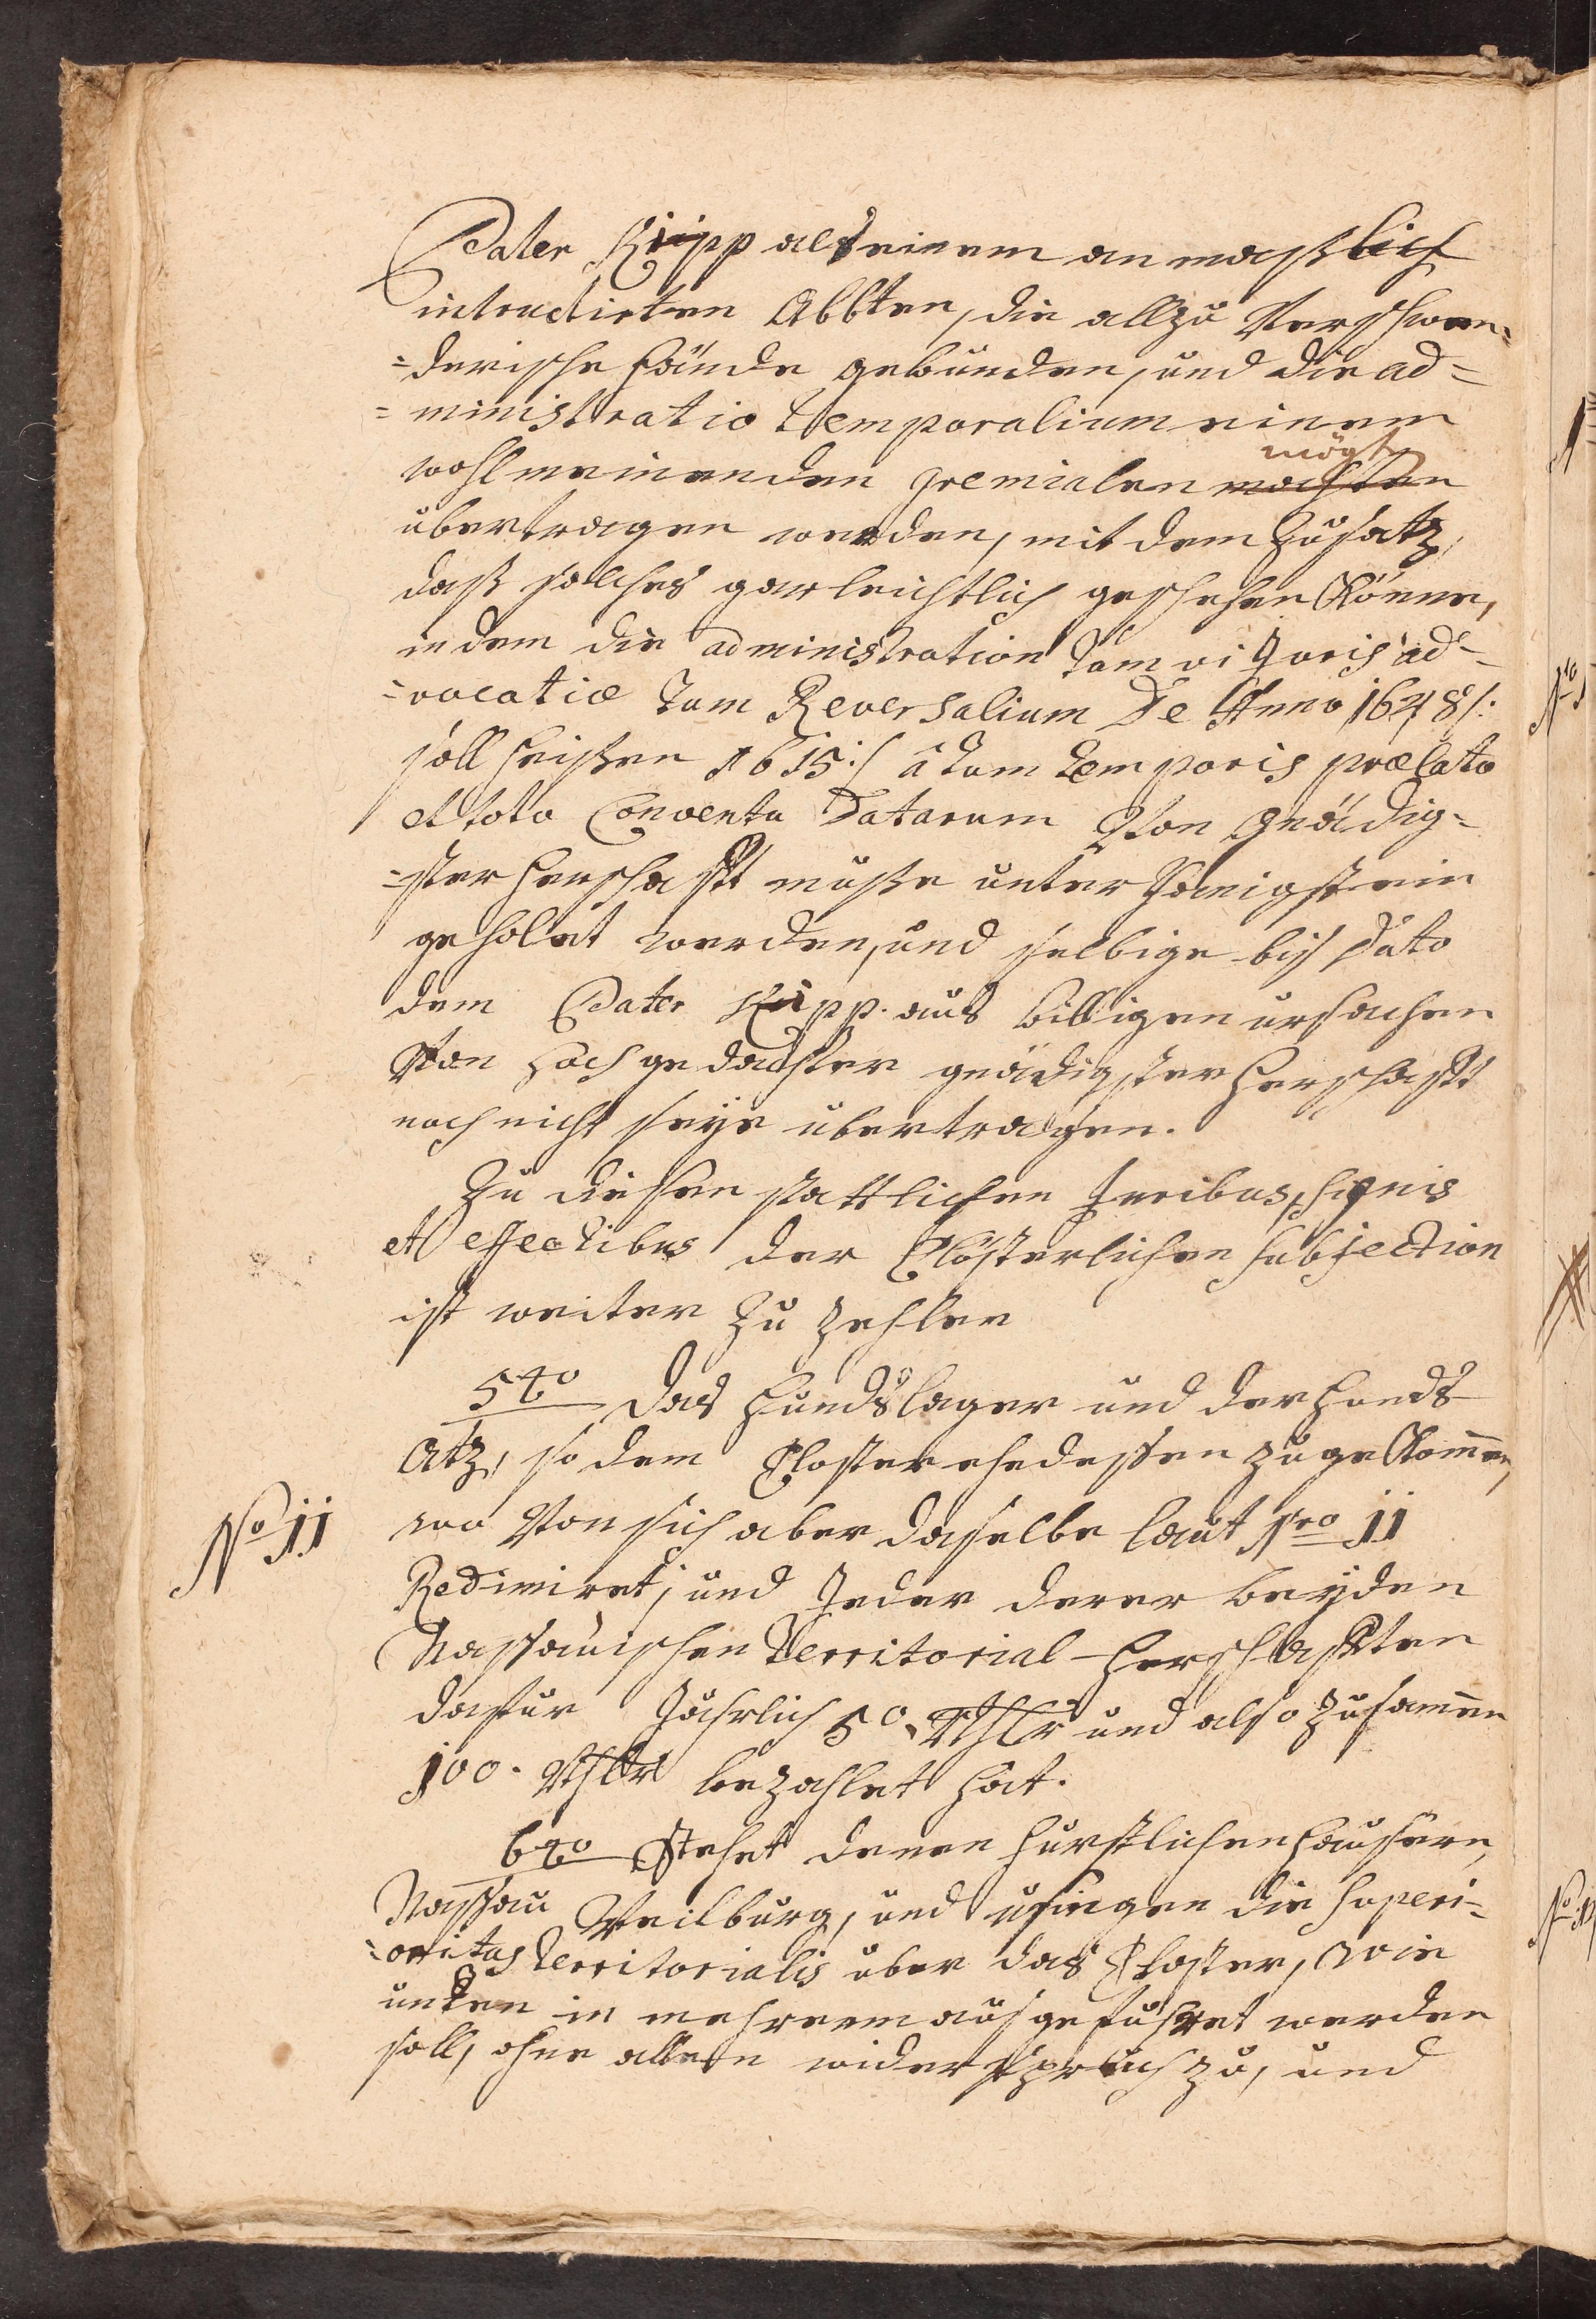 Pater Küpp als einem anmaßlich
intrudirten Abbten, die allzu Verschwen=
=derische hände gebunden, und die ad=
=ministratio temporalium einem
wohlmeinenden gremialen mögte machten
übertragen werden, mit dem Zusatz,
daß solches gar leichtlich geschehen Könne,
in dem die administration tam vi Juris ad=
=vocatiæ tam Reversalium De Anno 1648 /:
soll heißen 1615:/ â tum temporis prælato
et toto Conventu Datarum Von Gnädig=
=ster herschafft müße unterthänigst ein
geholet werden, und selbige biß Dato
dem Pater Küpp. aus billigen ursachen
Von hochgedachter gnädigster Herschafft
noch nicht seye übertragen.
Zu diesen stattlichen Juribus, signis
et effectibus der Clösterlichen subjection
ist weiter Zu zehlen
5to Das hundslager und der hunds
Atz, so dem Closter ehedessen zugekom̅en,
No 11
wo Von sich aber dasselbe laut Nro 11
Redimiret, und Jeder derer beyden
Nassauischen Territorial-herschafften
dafür Jährlich 50. Rthlr und also zusam̅en
100. Rthlr bezahlet hat.
6to Stehet denen fürstlichen häußern,
Nassau Weilburg, und usingen die superi=
=oritas Territorialis über das Closter, wie
unten in mehrerm ausgeführet werden
soll, ohne allen widerspruch zu, und